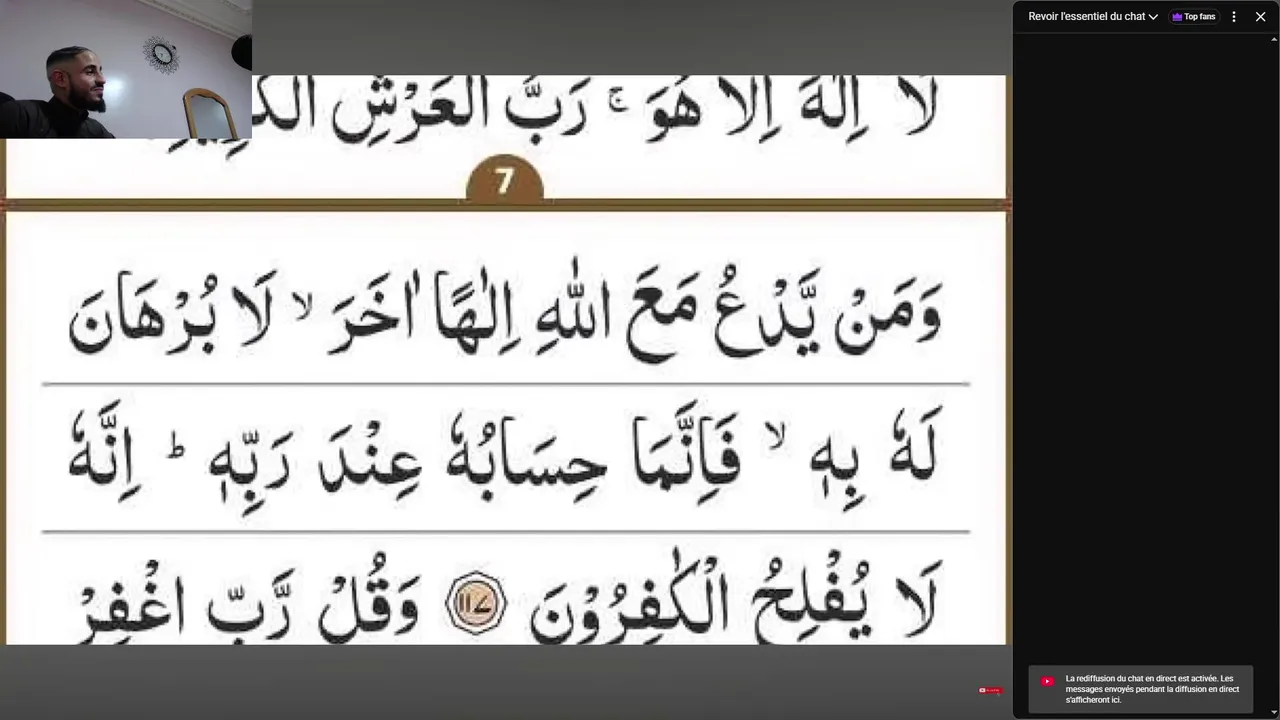 لَا اِلٰهَ اِلَّا هُوَ ۚ رَبُّ الْعَرْشِ
7
وَمَنْ يَّدْعُ مَعَ اللّٰهِ اِلٰهًا اٰخَرَ ۙ لَا بُرْهَانَ
لَهٗ بِهٖ ۙ فَاِنَّمَا حِسَابُهٗ عِنْدَ رَبِّهٖ ؕ اِنَّهٗ
لَا يُفْلِحُ الْكٰفِرُوْنَ ۝١١٧ وَقُلْ رَّبِّ اغْفِرْ
Revoir l'essentiel du chat
Top fans
La rediffusion du chat en direct est activée. Les
messages envoyés pendant la diffusion en direct
s'afficheront ici.